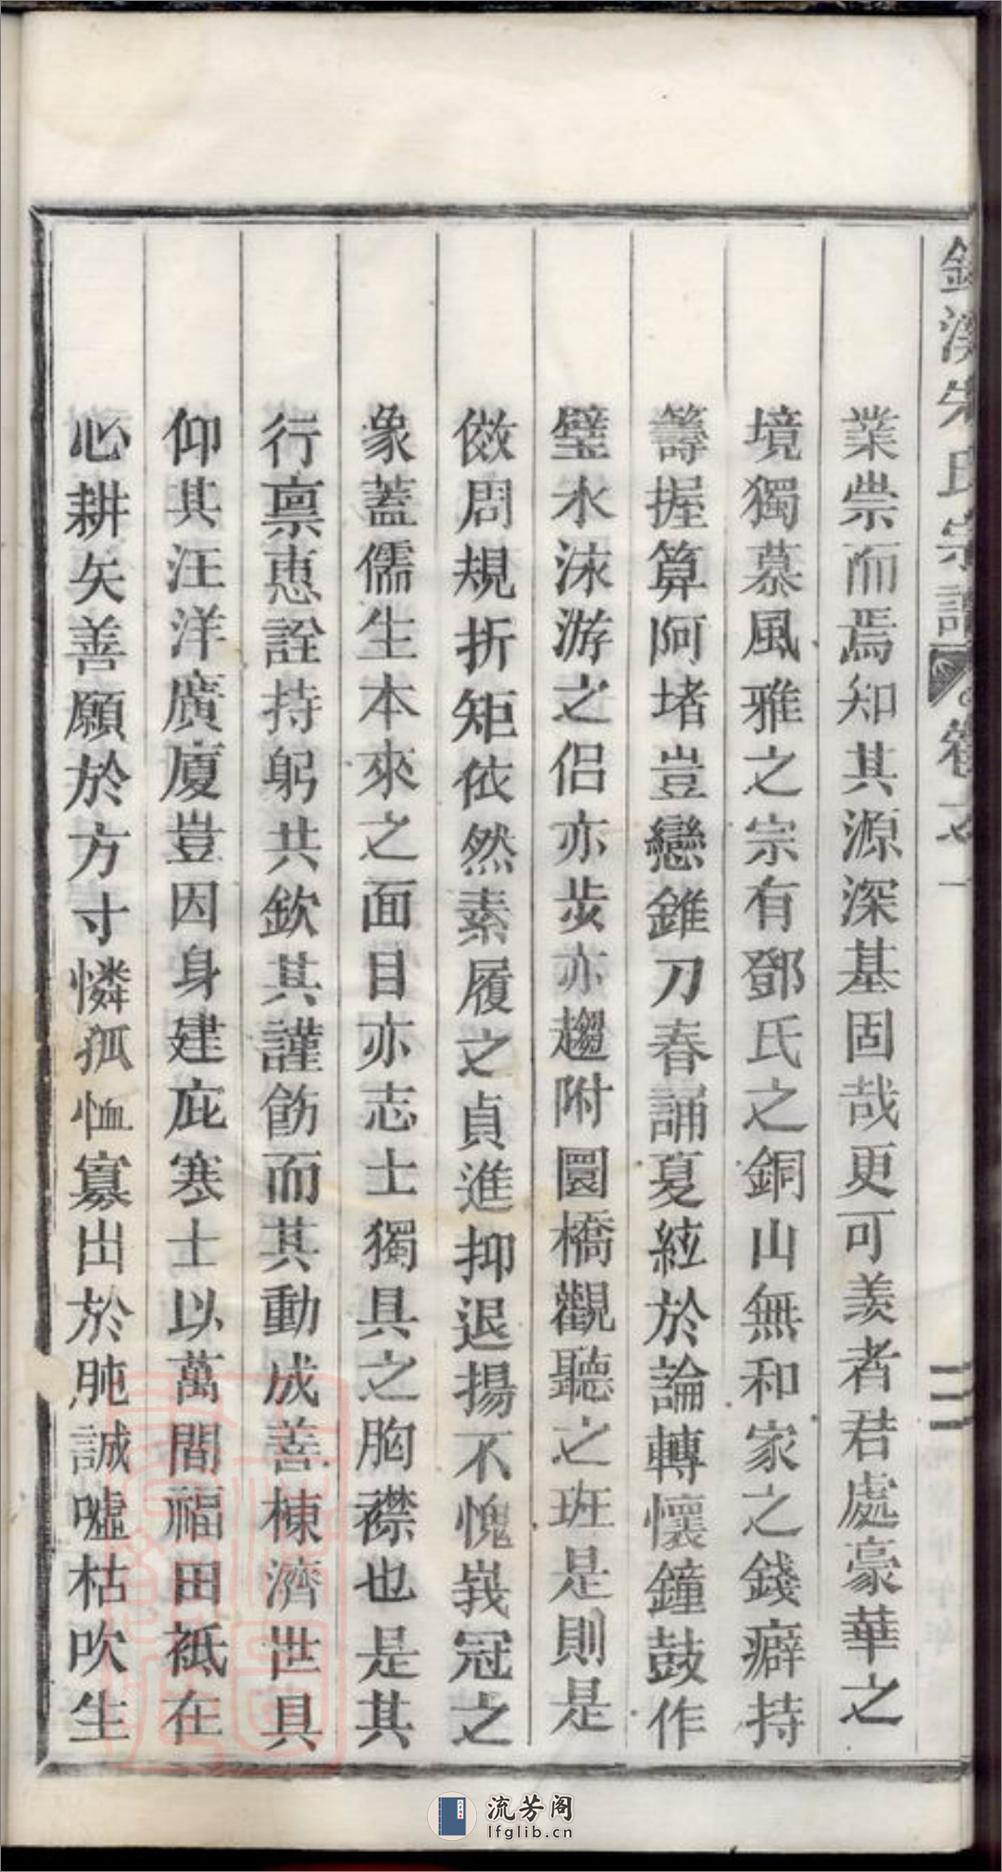 氏宗譜 卷之一
二
業崇而焉知其源深基固哉更可羨者君處豪華之
境獨慕風雅之宗有鄧氏之銅山無和家之錢癖持
籌握算阿堵豈戀錐刀春誦夏絃於論轉懷鐘鼓作
璧水泳游之侣亦步亦趨附圜橋觀聽之班是則是
傚周規折矩依然素履之貞進抑退揚不愧峩冠之
象蓋儒生本來之面目亦志士獨具之胸襟也是其
行禀惠詮持躬共欽其謹飭而其動成善棟濟世具
仰其汪洋廣廈豈因身建庇寒士以萬間福田祗在
心耕矢善願於方寸憐孤恤寡出於肫誠噓枯吹生
流芳阁
lfglib.cn